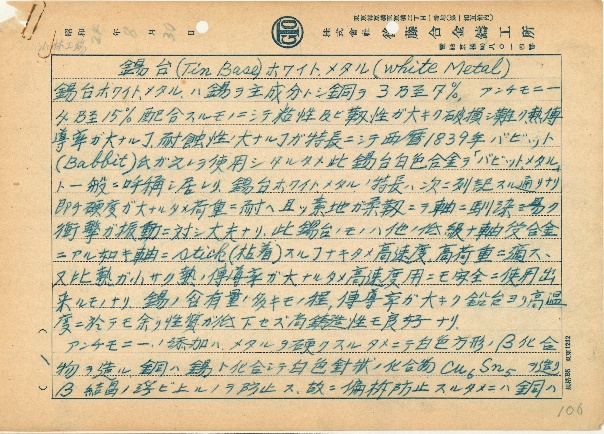 東京都京橋区京橋二丁目一番地(第一相互館内)
株式會社 後藤合金鑄工所
電話京橋 八〇一四番
昭和 24年 8月 30日
GTO
錫台(Tin Base)ホワイトメタル(White Metal)
錫台ホワイトメタルハ錫ヲ主成分トシ銅ヲ3乃至7%, アンチモニー
4乃至15%配合スルモノニシテ粘性及ビ靱性ガ大キク破損シ難ク熱傳
導率ガ大ナルコト, 耐蝕性ノ大ナルコトガ特長ニシテ西暦1839年バビット
(Babbit)氏ガ之レヲ使用シタルタメ此錫台白色合金ヲ「バビットメタル」
ト一般ニ呼稱シ居レリ, 錫台ホワイトメタルノ特長ハ次ニ列記スル通リナリ
即チ硬度ガ大ナルタメ荷重ニ耐ヘ且ツ素地ガ柔靱ニテ軸ニ馴染ミ易ク
衝撃ガ振動ニ対シ丈夫ナリ, 此錫台ノモノハ他ノ低級ナ軸受合金
ニアル如キ軸ニstick(粘着)スルコトナキタメ高速度, 高荷重ニ適ス,
又比熱ガ小サク熱ノ傳導率ガ大ナルタメ高速度用ニモ安全ニ使用出
来ルモノナリ, 錫ノ含有量ノ多キモノ程, 傳導率ガ大キク鉛台ヨリ高温
度ニ於テモ余リ性質ガ低下セズ尚鋳造性モ良好ナリ,
アンチモニーノ添加ハメタルヲ硬クスルタメニテ白色方形ノβ化合
物ヲ造ル 銅ハ錫ト化合シテ白色針狀ノ化合物 Cu6Sn5 ヲ造リ
β結晶ノ浮ビ上ルノヲ防止ス, 故ニ偏析防止スルタメニハ銅ハ
106